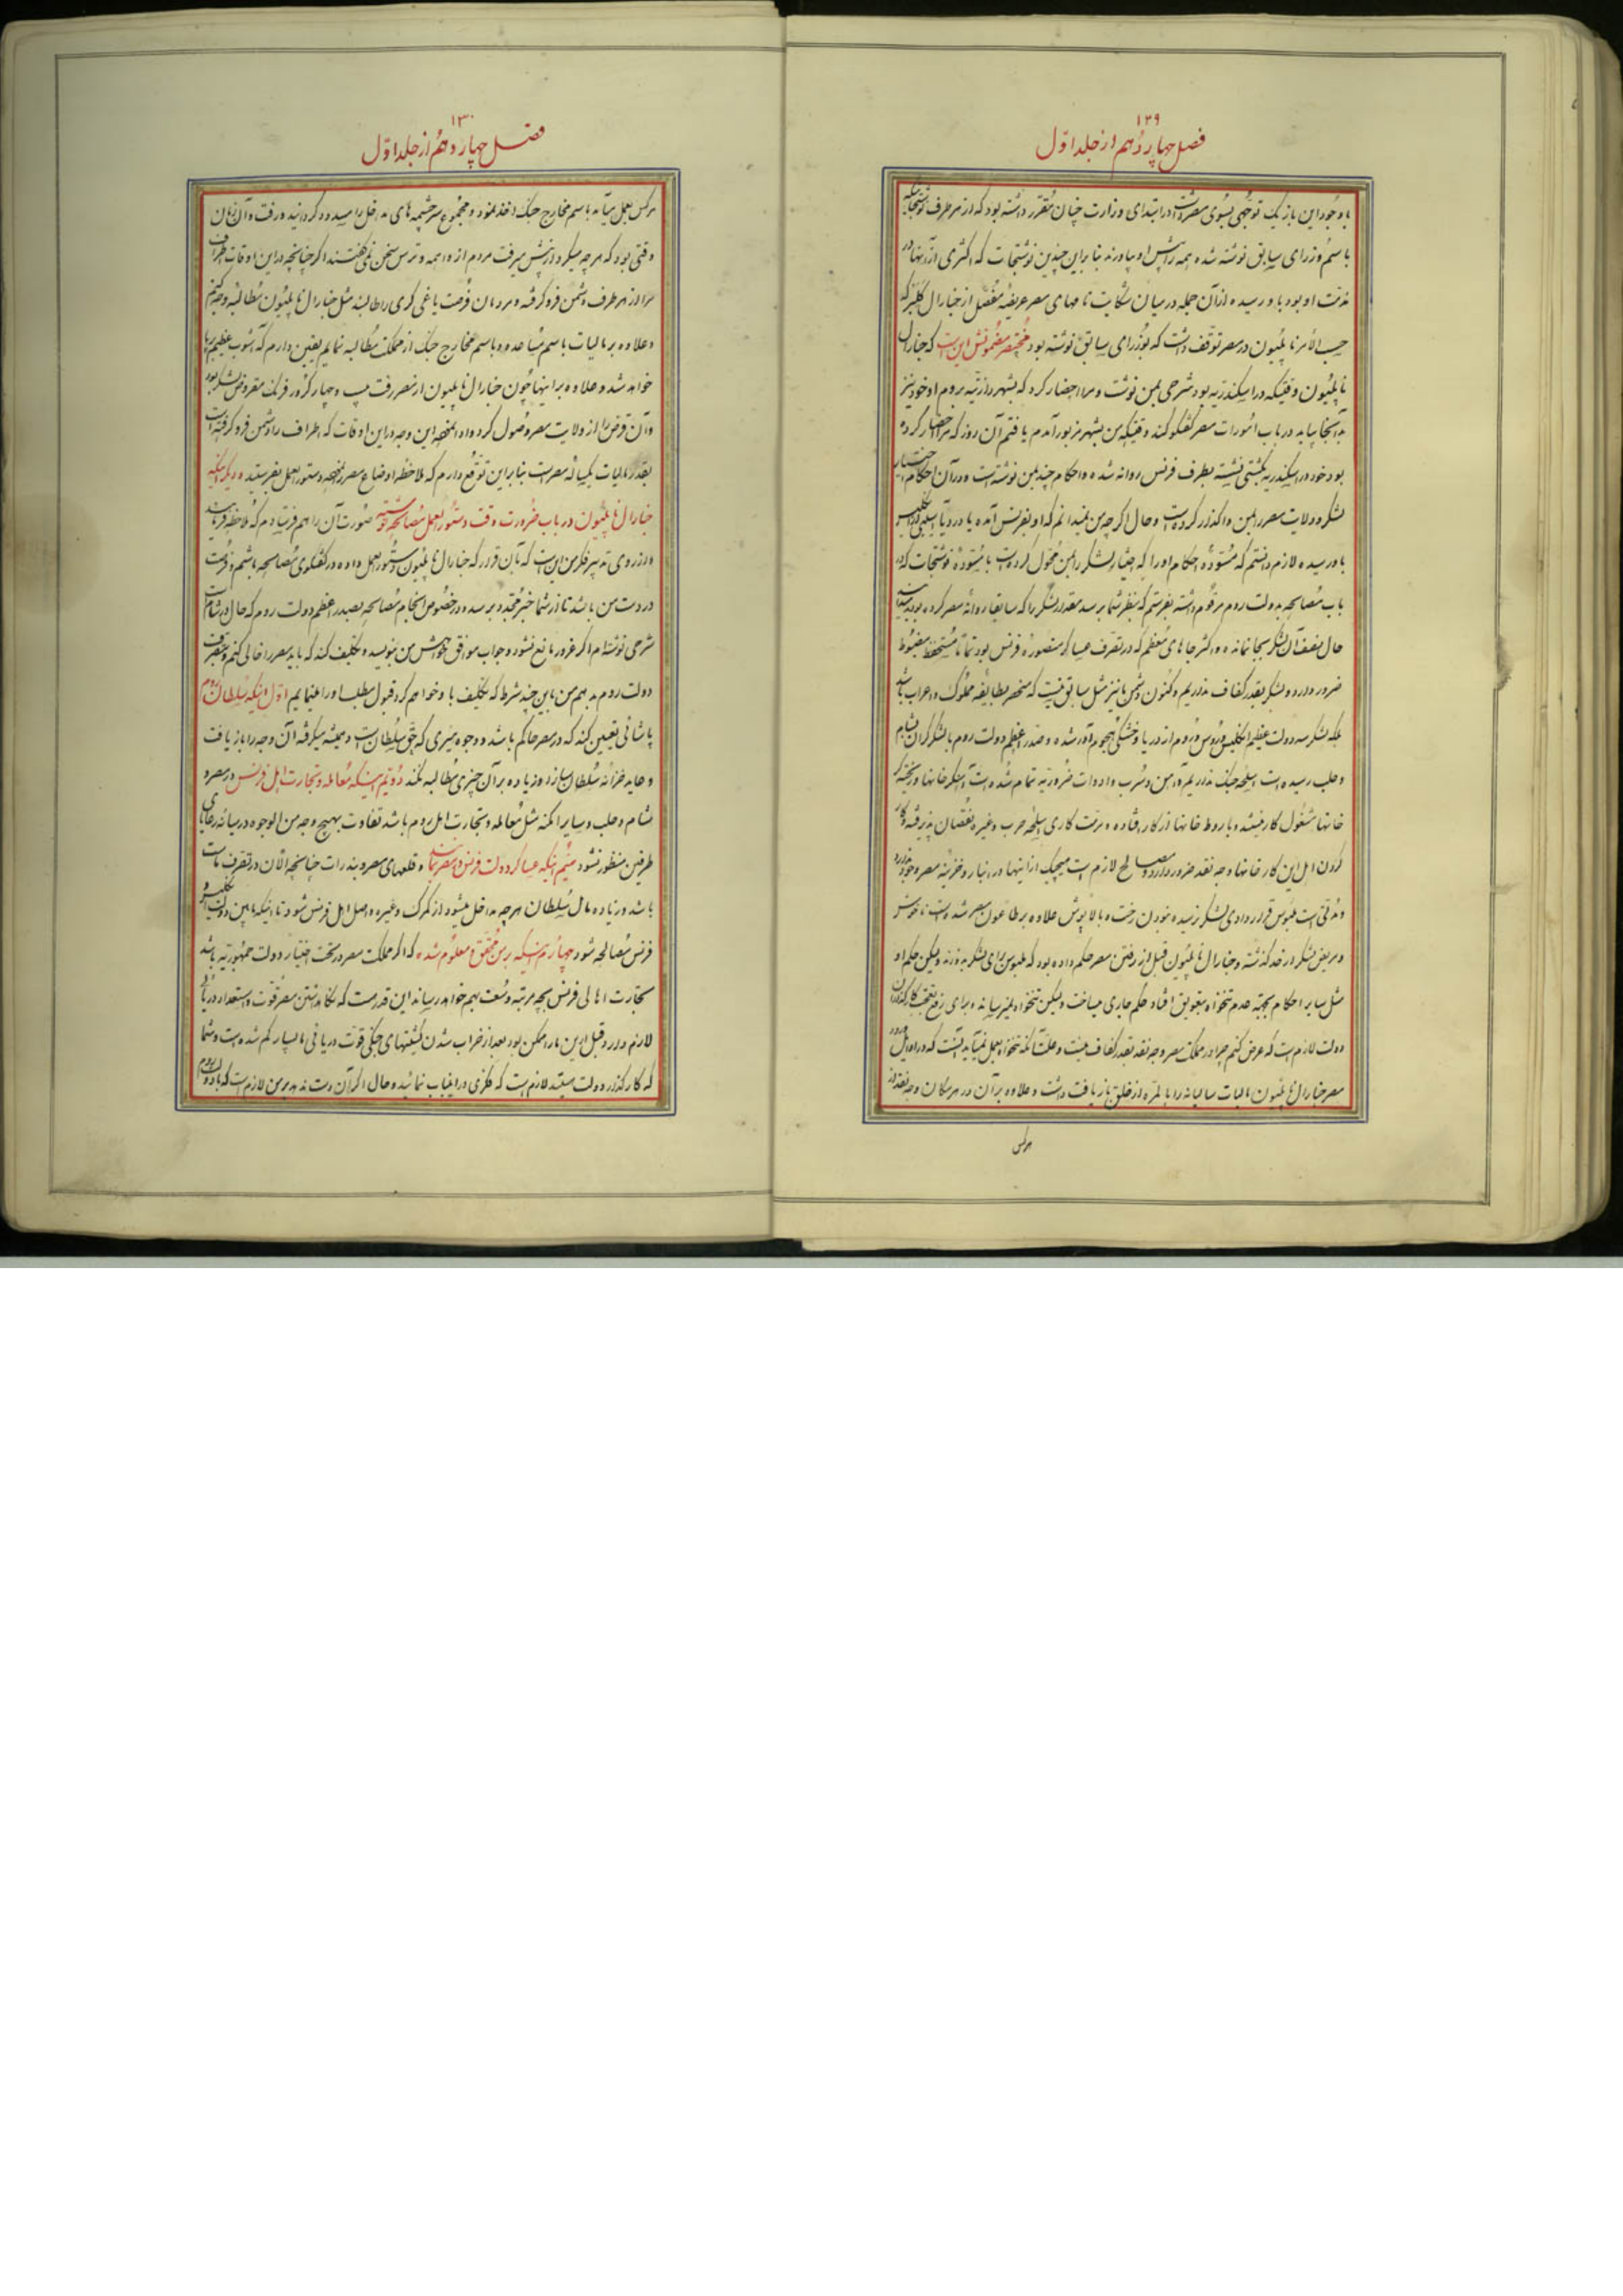 ۱۲۹
فصل چهاردهم از جلد اول
با وجود این باز یک توجهی بسوی مصر داشت در ابتدای وزارت چنان مقرر داشته بود که از هر طرف نوشتجاتیکه
باسم وزرای سابق نوشته شده همه را پیش او بیاورند بنابراین چندین نوشتجات که اکثری از آنها در
مذمت او بود باو رسیده از آن جمله در میان شکایت نامهای مصر عریضه مفصل از جنارال کلیبر که
حسب الامر ناپلیون در مصر توقف داشت که بوزرای سابق نوشته بود مختصر مضمونش این است که جنارال
ناپلیون وقتیکه در اسکندریه بود شرحی بمن نوشت و مرا احضار کرد که بشهر بروم او خود نیز
به آنجا بیاید در باب امورات مصر گفتگو کند وقتیکه من بشهر مزبور آمدم یافتم آن روز که مرا احضار کرده
بود خود در اسکندریه بکشتی نشسته بطرف فرنس روانه شده و احکام چند بمن نوشته است و در آن احکام اختیار
لشکر و ولایت مصر را بمن واگذار کرده است و حال اگر چه من نمیدانم که او بفرنس آمده یا در دریا انگلیس
باو رسیده لازم دانستم که مسوده احکام او را که اختیار لشکر را بمن محول کرده است با مسوده نوشتجات که در
باب مصالحه بدولت روم مرقوم داشته بفرستم که بنظر شما برسد مقدار لشکر را که سابقا روانه مصر کرده بودید
حال نصف آن لشکر بجا نمانده و اکثر جاهای معظم که در تصرف عساکر منصوره فرنس بود تماما مستحفظ مضبوط
ضرور دارد و لشکر بقدر کفاف نداریم و کنون دشمن ما نیز مثل سابق نیست که منحصر بطایفه مملوک و اعراب باشد
بلکه لشکر سه دولت عظیم انگلیس و روس و روم از دریا و خشکی هجوم آور شده و صدر اعظم دولت روم با لشکر گران بشام
و حلب رسیده است اسلحه جنگ نداریم و آهن و سرب و ادوات ضروریه تمام شده است
خانها مشغول کار نیستند و باروط خانها از کار افتاده و مرمت کاری اسلحه حرب و غیره نقصان پذیرفته و کار
کردن اهل این کارخانها وجه نقد ضرور دارد و مصالح لازم است هیچیک از اینها در انبار و خزینه مصر وجود ندارد
و مدتی است ملبوس قراردادی لشکر نرسیده
و مریض لشکر از حد گذشته و جنارال ناپلیون قبل از رفتن مصر حکم داده بود که ملبوس برای لشکر بدوزند ولیکن حکم او
مثل سایر احکام بجهت عدم تنخواه بتعویق افتاد حکم جاری میساخت ولیکن تنخواه نمیرسانید
دولت لازم است که عرض کنم چرا در مملکت مصر وجه نقد بقدر کفاف نیست و علت آنکه تنخواه بعمل نمیآید آنست که در اوایل ورود
مصر جنارال ناپلیون مالیات سالیانه را بالمره از خلق بازیافت داشت و علاوه بر آن در هر مکان وجه نقد از
هرکس
۱۳۰
فصل چهاردهم از جلد اول
هرکس بعمل میآید باسم مخارج جنگ اخذ نمود و مجموع سرچشمه های مداخل را مسدود گردانید و رفت و آن زمان
وقتی بود که هر چه میکرد از پیش میرفت مردم از واهمه و ترس سخن نمی گفتند اگر چنانچه در این اوقات اطراف
مرا از هر طرف دشمن فرو گرفته و مردمان فرصت یاغی گری را طالبند مثل جنارال ناپلیون مطالبه وجه کنم
و علاوه بر مالیات باسم مساعده و باسم مخارج جنگ از مملکت مطالبه نمایم یقین دارم که آشوب عظیم برپا
خواهد شد و علاوه بر اینها چون جنارال ناپلیون از مصر رفت بیست و چهار کرور فرنک مقروض لشکر بود
و آن قرض را از ولایت مصر وصول کرد و داد المحصه این وجه در این اوقات که اطراف را دشمن فرو گرفته است
بقدر مالیات یکساله مصر است بنابراین توقع دارم که ملاحظه اوضاع مصر را نموده دستور العمل بفرستید و دیگر اینکه
جنارال ناپلیون در باب ضرورت وقت دستور العمل مصالحه نوشته صورت آن را هم فرستادم که ملاحظه فرمائید
و از روی تدبیر فکر من این است که بآن قرار که جنارال ناپلیون دستور العمل داده در گفتگوی مصالحه باشم و فرصت
در دست من باشد تا از شما خبر مجدد برسد و در خصوص انجام مصالحه بصدر اعظم دولت روم که حال در شام است
شرحی نوشته ام اگر غرور مانع نشود و جواب موافق خواهش من بنویسد و تکلیف کند که باید مصر را خالی کنم و بتصرف
دولت روم بدهم من باین چند شرط که تکلیف باو خواهم کرد قبول مطلب او را مینمایم اول اینکه سلطان روم
پاشائی تعیین کند که در مصر حاکم باشد و وجوه میری که حق سلطان است و همیشه میگرفته آن وجه را بازیافت
و عاید خزانه سلطان سازد و زیاده بر آن چیزی مطالبه نکند دویم اینکه معامله و تجارت اهل فرنس در مصر و
شام و حلب و سایر امکنه مثل معامله و تجارت اهل روم باشد تفاوت بهیچ وجه من الوجوه در میانه رعایای
طرفین منظور نشود سیم اینکه عساکر دولت فرنس در مصر بماند و قلعهای مصر و بندرات چنانچه الآن در تصرف ماست
باشد و زیاده مال سلطان هر چه مداخل میشود از گمرک و غیره واصل اهل فرنس شود تا اینکه مابین دولت انگلیس و
فرنس مصالحه شود چهارم اینکه بر من محقق و معلوم شده که اگر مملکت مصر در تحت اختیار دولت جمهوریه باشد
تجارت اهالی فرنس بچه مرتبه وسعت بهم خواهد رسانید این قدر هست که نگاه داشتن مصر قوت و استعداد دریائی
لازم دارد و قبل از این ما را ممکن بود بعد از خراب شدن کشتیهای جنگی قوت دریائی ما بسیار کم شده است و شما
که کارگذار دولت هستید لازم است که فکری در این باب نمائید و حال اگر آن دست ندهد بر من لازم است که با دولت روم